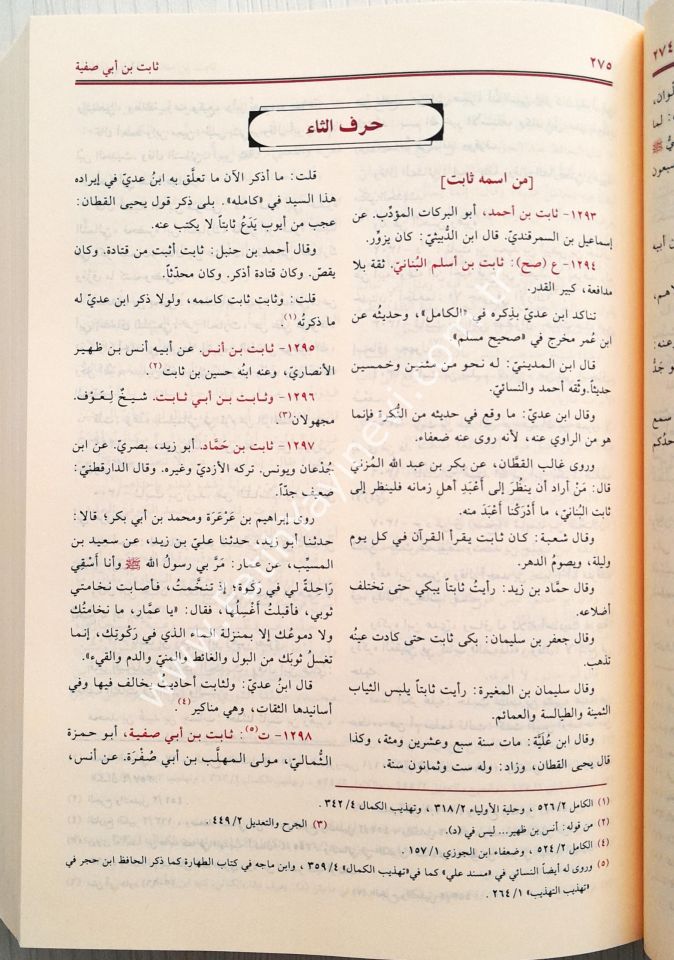 ٢٧٥
ثابت بن أبي صفية
حرف الثاء
[من اسمه ثابت]
١٢٩٣- ثابت بن أحمد، أبو البركات المؤدّب. عن
إسماعيل بن السمرقنديّ. قال ابن الدُّبيثيّ: كان يزوِّر.
١٢٩٤- ع (صح): ثابت بن أسلم البُنانيّ. ثقة بلا
مدافعة، كبير القدر.
تناكد ابن عديّ بذِكره في «الكامل»، وحديثُه عن
ابن عُمر مخرج في «صحيح مسلم».
قال ابن المدينيّ: له نحو من مئتين وخمسين
حديثاً. وثّقه أحمد والنسائي.
وقال ابن عديّ: ما وقع في حديثه من النُّكرة فإنما
هو من الراوي عنه، لأنه روى عنه ضعفاء.
وروى غالب القطَّان، عن بكر بن عبد الله المُزنيّ
قال: مَنْ أراد أن ينظُرَ إلى أَعْبَدِ أهلِ زمانه فلينظر إلى
ثابت البُنَانيّ، ما أَدْرَكْنا أَعْبَدَ منه.
وقال شعبة: كان ثابت يقرأ القرآن في كل يوم
وليلة، ويصومُ الدهر.
وقال حمَّاد بن زيد: رأيتُ ثابتاً يبكي حتى تختلف
أضلاعه.
وقال جعفر بن سليمان: بكى ثابت حتى كادت عينُه
تذهب.
وقال سليمان بن المغيرة: رأيت ثابتاً يلبس الثياب
الثمينة والطيالسة والعمائم.
وقال ابن عُليَّة: مات سنة سبع وعشرين ومئة، وكذا
قال يحيى القطان، وزاد: وله ست وثمانون سنة.
قلت: ما أذكر الآن ما تعلَّق به ابنُ عديّ في إيراده
هذا السيد في «كامله». بلى ذكر قول يحيى القطان:
عجب من أيوب يَدَعُ ثابتاً لا يكتب عنه.
وقال أحمد بن حنبل: ثابت أثبت من قتادة. وكان
يقصّ. وكان قتادة أذكر. وكان محدّثاً.
قلت: وثابت ثابت كاسمه، ولولا ذكر ابن عديّ له
ما ذكرتُه(١).
١٢٩٥- ثابت بن أنس. عن أبيه أنس بن ظهير
الأنصاريّ، وعنه ابنُه حسين بن ثابت(٢).
١٢٩٦- وثابت بن أبي ثابت. شيخٌ لِعَوْف.
مجهولان(٣).
١٢٩٧- ثابت بن حَمَّاد. أبو زيد، بصريّ. عن ابن
جُدْعان ويونس. تركه الأزديّ وغيره. وقال الدارقطنيّ:
ضعيف جدّاً.
روى إبراهيم بن عَرْعَرَة ومحمد بن أبي بكر؛ قالا:
حدثنا أبو زيد، حدثنا عليّ بن زيد، عن سعيد بن
المسيّب، عن عمار: مَرَّ بي رسولُ الله ﷺ وأنا أَسْقِي
رَاحِلَةً لي في رَكْوة؛ إذ تنخَّمتُ، فأصابت نخامتي
ثوبي، فأقبلتُ أَغْسِلُها، فقال: «يا عمَّار، ما نخامتُك
ولا دموعُك إلا بمنزلة الماء الذي في رَكْوتِك، إنما
تغسلُ ثوبَك من البول والغائط والمنيّ والدم والقيء».
قال ابنُ عديّ: ولثابت أحاديث يخالف فيها وفي
أسانيدها الثقات، وهي مناكير(٤).
١٢٩٨- ت(٥): ثابت بن أبي صفية، أبو حمزة
الثُّماليّ، مولى المهلَّب بن أبي صُفْرَة. عن أنس،
(١) الكامل ٥٢٦/٢، وحلية الأولياء ٣١٨/٢، وتهذيب الكمال ٣٤٢/٤.
(٢) من قوله: أنس بن ظهير... ليس في (د). (٣) الجرح والتعديل ٤٤٩/٢.
(٤) الكامل ٥٢٤/٢، وضعفاء ابن الجوزي ١٥٧/١.
(٥) وروى له أيضاً النسائي في «مسند علي» كما في «تهذيب الكمال» ٣٥٩/٤، وابن ماجه في كتاب الطهارة كما ذكر الحافظ ابن حجر في
«تهذيب التهذيب» ٢٦٤/١.
٢٧٤